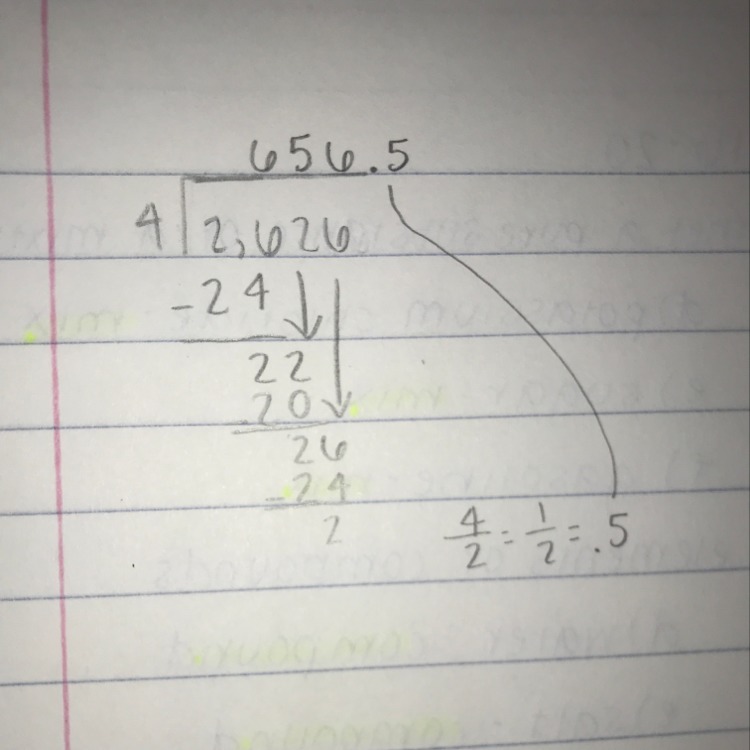 656.5
4 2,626
-24
22
20
26
-24
2
4/2 = 1/2 = .5